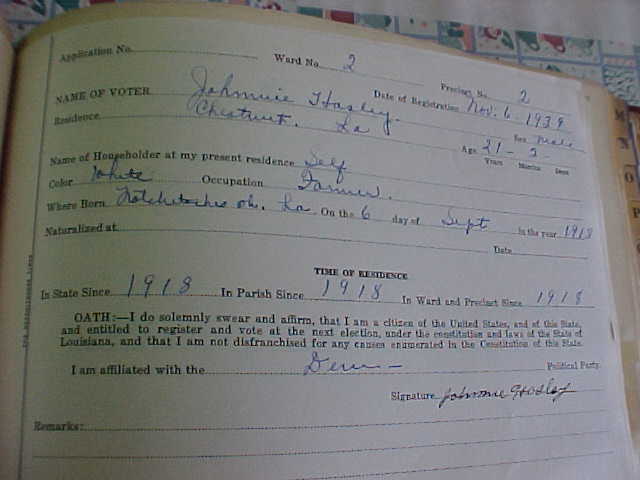 Application No. Ward No. 2 Precinct No. 2
NAME OF VOTER Johnnie Hasley. Date of Registration Nov. 6 1939
Residence Chestnut, La Sex male
Age 21 - 2
Years Months Days
Name of Householder at my present residence Self
Color White Occupation Farmer.
Where Born Natchitoches La. On the 6 day of Sept in the year 1918
Naturalized at Date
TIME OF RESIDENCE
In State Since 1918 In Parish Since 1918 In Ward and Precinct Since 1918
OATH:—I do solemnly swear and affirm, that I am a citizen of the United States, and of this State,
and entitled to register and vote at the next election, under the constitution and laws of the State of
Louisiana, and that I am not disfranchised for any causes enumerated in the Constitution of this State.
I am affiliated with the Dem— Political Party.
Signature Johnnie Hasley
Remarks:
M
N
O
P